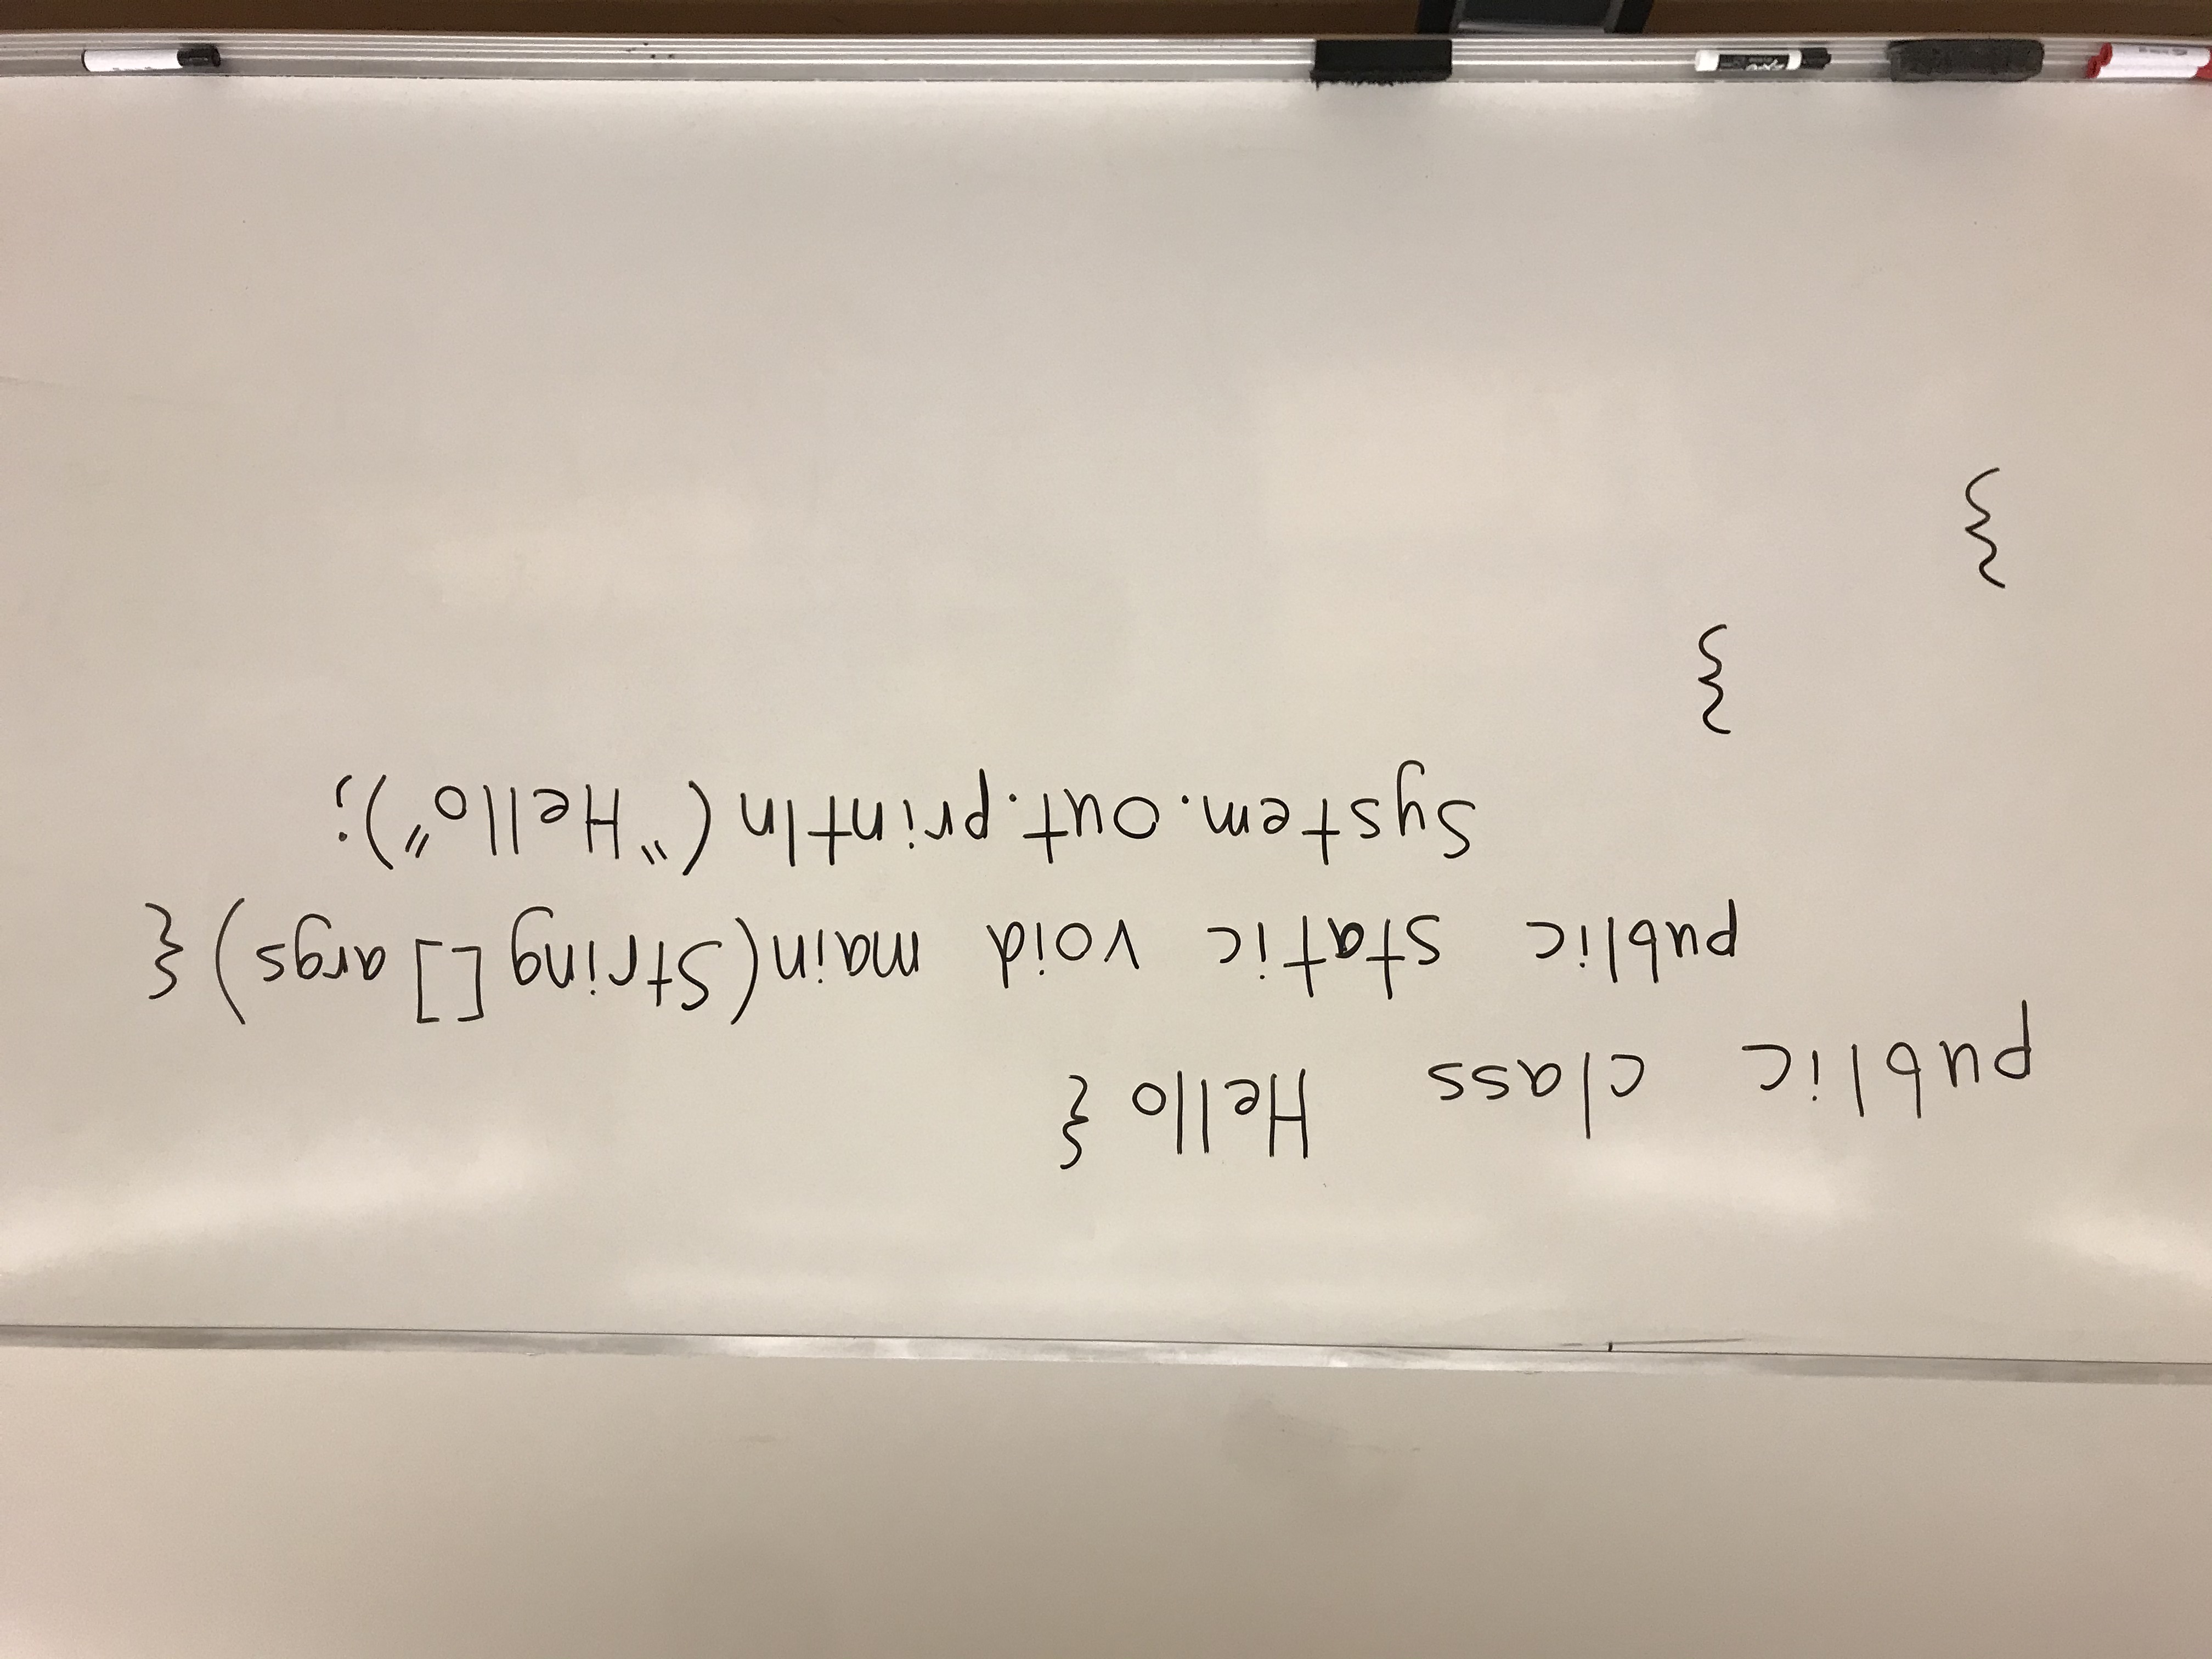 public class Hello {
public static void main(String [] args) {
System.out.println ("Hello");
}
}
EXPO